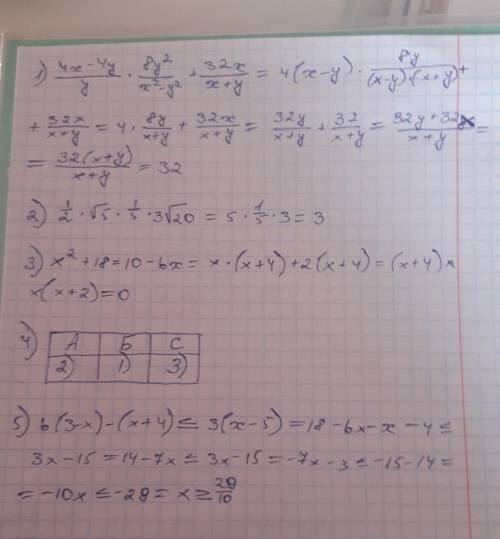 1) (4x-4y)/y · 8y²/(x²-y²) + 32x/(x+y) = 4(x-y) · 8y/((x-y)·(x+y)) +
+ 32x/(x+y) = 4 · 8y/(x+y) + 32x/(x+y) = 32y/(x+y) + 32/(x+y) = (32y+32x)/(x+y) =
= 32(x+y)/(x+y) = 32
2) 1/2 · √5 · 1/5 · 3√20 = 5 · 1/5 · 3 = 3
3) x² + 18 = 10 - 6x = x · (x+4) + 2(x+4) = (x+4) ×
x(x+2) = 0
4) А Б С
2) 1) 3)
5) 6(3-x) - (x+4) ≤ 3(x-5) = 18 - 6x - x - 4 ≤
3x - 15 = 14 - 7x ≤ 3x - 15 = -7x - 3 ≤ -15 - 14 =
= -10x ≤ -29 = x ≥ 29/10